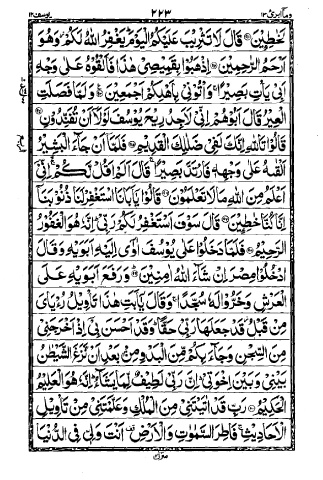 وما ابرئ ۱۳ ۲۲۳ یوسف ۱۲
لَخٰطِـِٕيْنَ۝ قَالَ لَا تَثْرِيْبَ عَلَيْكُمُ الْيَوْمَ ؕ يَغْفِرُ اللّٰهُ لَكُمْ ؗ وَهُوَ
اَرْحَمُ الرّٰحِمِيْنَ۝ اِذْهَبُوْا بِقَمِيْصِيْ هٰذَا فَاَلْقُوْهُ عَلٰى وَجْهِ
اَبِيْ يَاْتِ بَصِيْرًا ۚ وَاْتُوْنِيْ بِاَهْلِكُمْ اَجْمَعِيْنَ۝ وَلَمَّا فَصَلَتِ
الْعِيْرُ قَالَ اَبُوْهُمْ اِنِّيْ لَاَجِدُ رِيْحَ يُوْسُفَ لَوْلَاۤ اَنْ تُفَنِّدُوْنِ۝
قَالُوْا تَاللّٰهِ اِنَّكَ لَفِيْ ضَلٰلِكَ الْقَدِيْمِ۝ فَلَمَّاۤ اَنْ جَآءَ الْبَشِيْرُ
اَلْقٰىهُ عَلٰى وَجْهِهٖ فَارْتَدَّ بَصِيْرًا ۚ قَالَ اَلَمْ اَقُلْ لَّكُمْ ۙ اِنِّيْۤ
اَعْلَمُ مِنَ اللّٰهِ مَا لَا تَعْلَمُوْنَ۝ قَالُوْا يٰۤاَبَانَا اسْتَغْفِرْ لَنَا ذُنُوْبَنَاۤ
اِنَّا كُنَّا خٰطِـِٕيْنَ۝ قَالَ سَوْفَ اَسْتَغْفِرُ لَكُمْ رَبِّيْ ؕ اِنَّهٗ هُوَ الْغَفُوْرُ
الرَّحِيْمُ۝ فَلَمَّا دَخَلُوْا عَلٰى يُوْسُفَ اٰوٰۤى اِلَيْهِ اَبَوَيْهِ وَقَالَ
ادْخُلُوْا مِصْرَ اِنْ شَآءَ اللّٰهُ اٰمِنِيْنَ۝ وَرَفَعَ اَبَوَيْهِ عَلَى
الْعَرْشِ وَخَرُّوْا لَهٗ سُجَّدًا ۚ وَقَالَ يٰۤاَبَتِ هٰذَا تَاْوِيْلُ رُءْيَايَ
مِنْ قَبْلُ ؗ قَدْ جَعَلَهَا رَبِّيْ حَقًّا ؕ وَقَدْ اَحْسَنَ بِيْۤ اِذْ اَخْرَجَنِيْ
مِنَ السِّجْنِ وَجَآءَ بِكُمْ مِّنَ الْبَدْوِ مِنْۢ بَعْدِ اَنْ نَّزَغَ الشَّيْطٰنُ
بَيْنِيْ وَبَيْنَ اِخْوَتِيْ ؕ اِنَّ رَبِّيْ لَطِيْفٌ لِّمَا يَشَآءُ ؕ اِنَّهٗ هُوَ الْعَلِيْمُ
الْحَكِيْمُ۝ رَبِّ قَدْ اٰتَيْتَنِيْ مِنَ الْمُلْكِ وَعَلَّمْتَنِيْ مِنْ تَاْوِيْلِ
الْاَحَادِيْثِ ۚ فَاطِرَ السَّمٰوٰتِ وَالْاَرْضِ ۫ اَنْتَ وَلِيّٖ فِي الدُّنْيَا